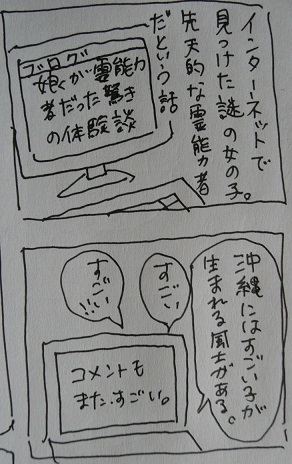 インターネットで
見つけた謎の女の子。
先天的な霊能力者
だという話
ブログ
娘が霊能力
者だった驚き
の体験談
沖縄にはすごい子が
生まれる風土がある。
すごい
すごい!!
コメントも
また、すごい。